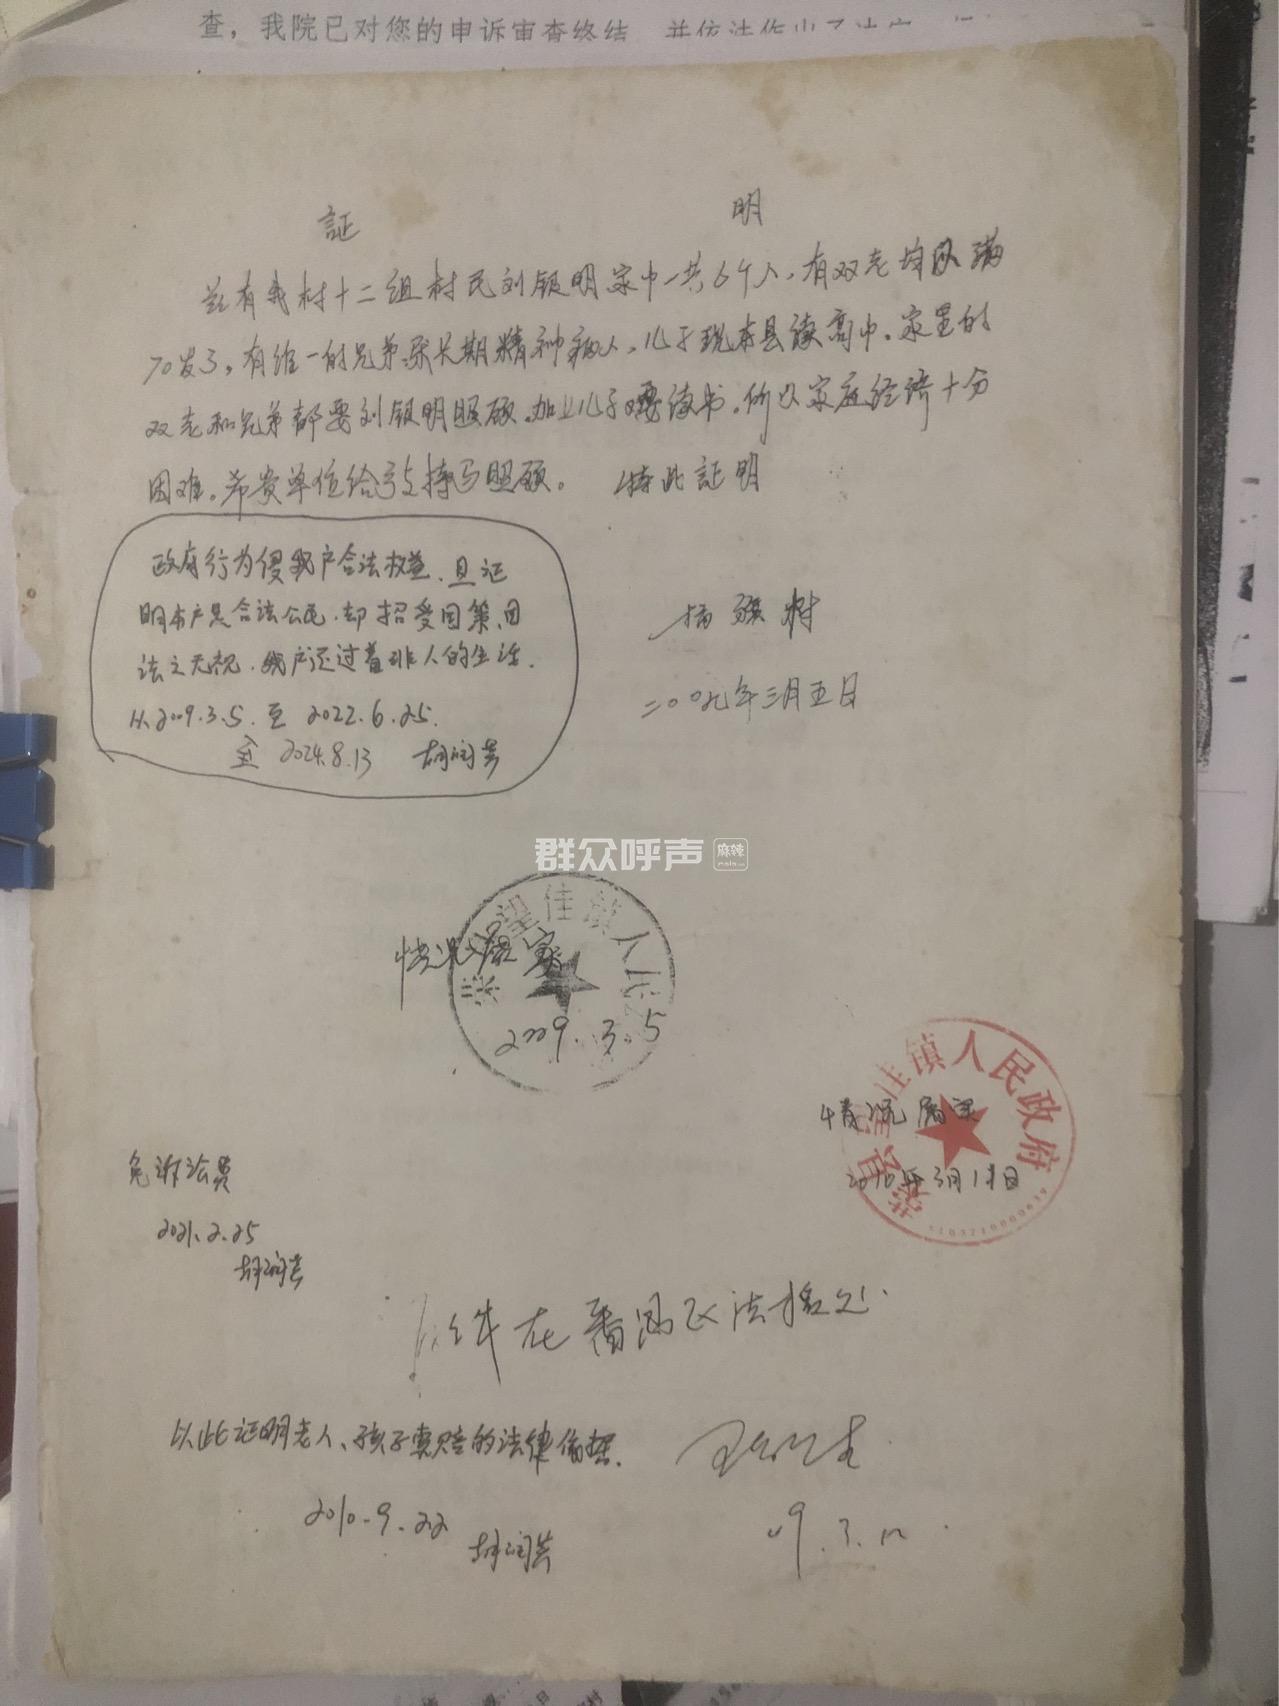 查，我院已对您的申诉审查终结，并依法作出了决定
証 明
兹有我村十二组村民刘银明家中一共6个人，有双老均以满
70岁了，有维一的兄弟系长期精神病人，儿子现在县读高中。家里的
双老和兄弟都要刘银明照顾，加上儿子要读书，所以家庭经济十分
困难。希贵单位给予支持与照顾。 特此証明
政府行为侵我户合法权益，且证
明本户是合法公民，却招受国策、国
法之无视，我户还过着非人的生活。
从2009.3.5.至 2022.6.25.
至 2024.8.13 胡润芸
杨旗村
二00九年三月五日
群众呼声 麻辣
荣 望佳镇人民
情况属实
2009.3.5
望佳镇人民政府
情况属实
2010年3月1日
免诉讼费
2021.2.25
胡润芸
原件在番禺区法援处.
以此证明老人、孩子要赔的法律依据.
2010.9.22
胡润芸
09.3.12.